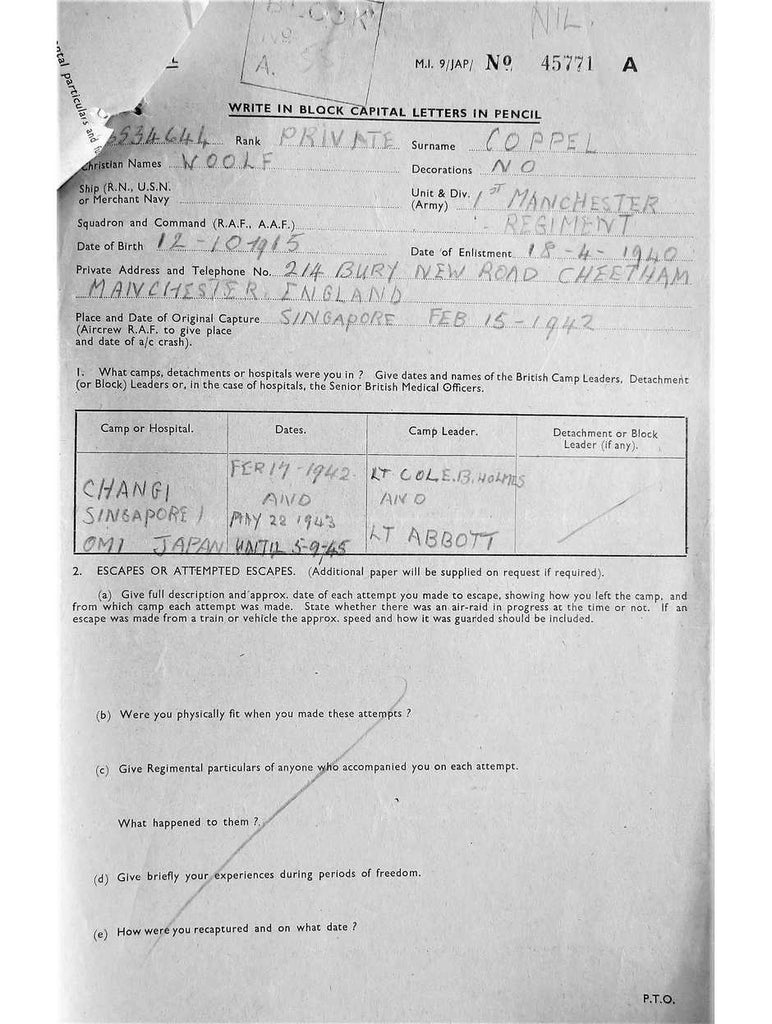 BLOCK NIL.
No
A. 58
M.I. 9/JAP/ No 45771 A
ntal particulars and
WRITE IN BLOCK CAPITAL LETTERS IN PENCIL
3534644 Rank PRIVATE Surname COPPEL
Christian Names WOOLF Decorations NO
Ship (R.N., U.S.N. or Merchant Navy
Unit & Div. (Army) 1ST MANCHESTER REGIMENT
Squadron and Command (R.A.F., A.A.F.)
Date of Birth 12-10-1915 Date of Enlistment 18-4-1940
Private Address and Telephone No. 214 BURY NEW ROAD CHEETHAM
MANCHESTER ENGLAND
Place and Date of Original Capture SINGAPORE FEB 15-1942
(Aircrew R.A.F. to give place
and date of a/c crash).
1. What camps, detachments or hospitals were you in ? Give dates and names of the British Camp Leaders, Detachment
(or Block) Leaders or, in the case of hospitals, the Senior British Medical Officers.
Camp or Hospital. Dates. Camp Leader. Detachment or Block
Leader (if any).
FEB 17-1942. LT COL E.B. HOLMES
CHANGI AND AND
SINGAPORE MAY 28 1943
OMI JAPAN UNTIL 5-9-45 LT ABBOTT
2. ESCAPES OR ATTEMPTED ESCAPES. (Additional paper will be supplied on request if required).
(a) Give full description and approx. date of each attempt you made to escape, showing how you left the camp, and
from which camp each attempt was made. State whether there was an air-raid in progress at the time or not. If an
escape was made from a train or vehicle the approx. speed and how it was guarded should be included.
(b) Were you physically fit when you made these attempts ?
(c) Give Regimental particulars of anyone who accompanied you on each attempt.
What happened to them ?
(d) Give briefly your experiences during periods of freedom.
(e) How were you recaptured and on what date ?
P.T.O.